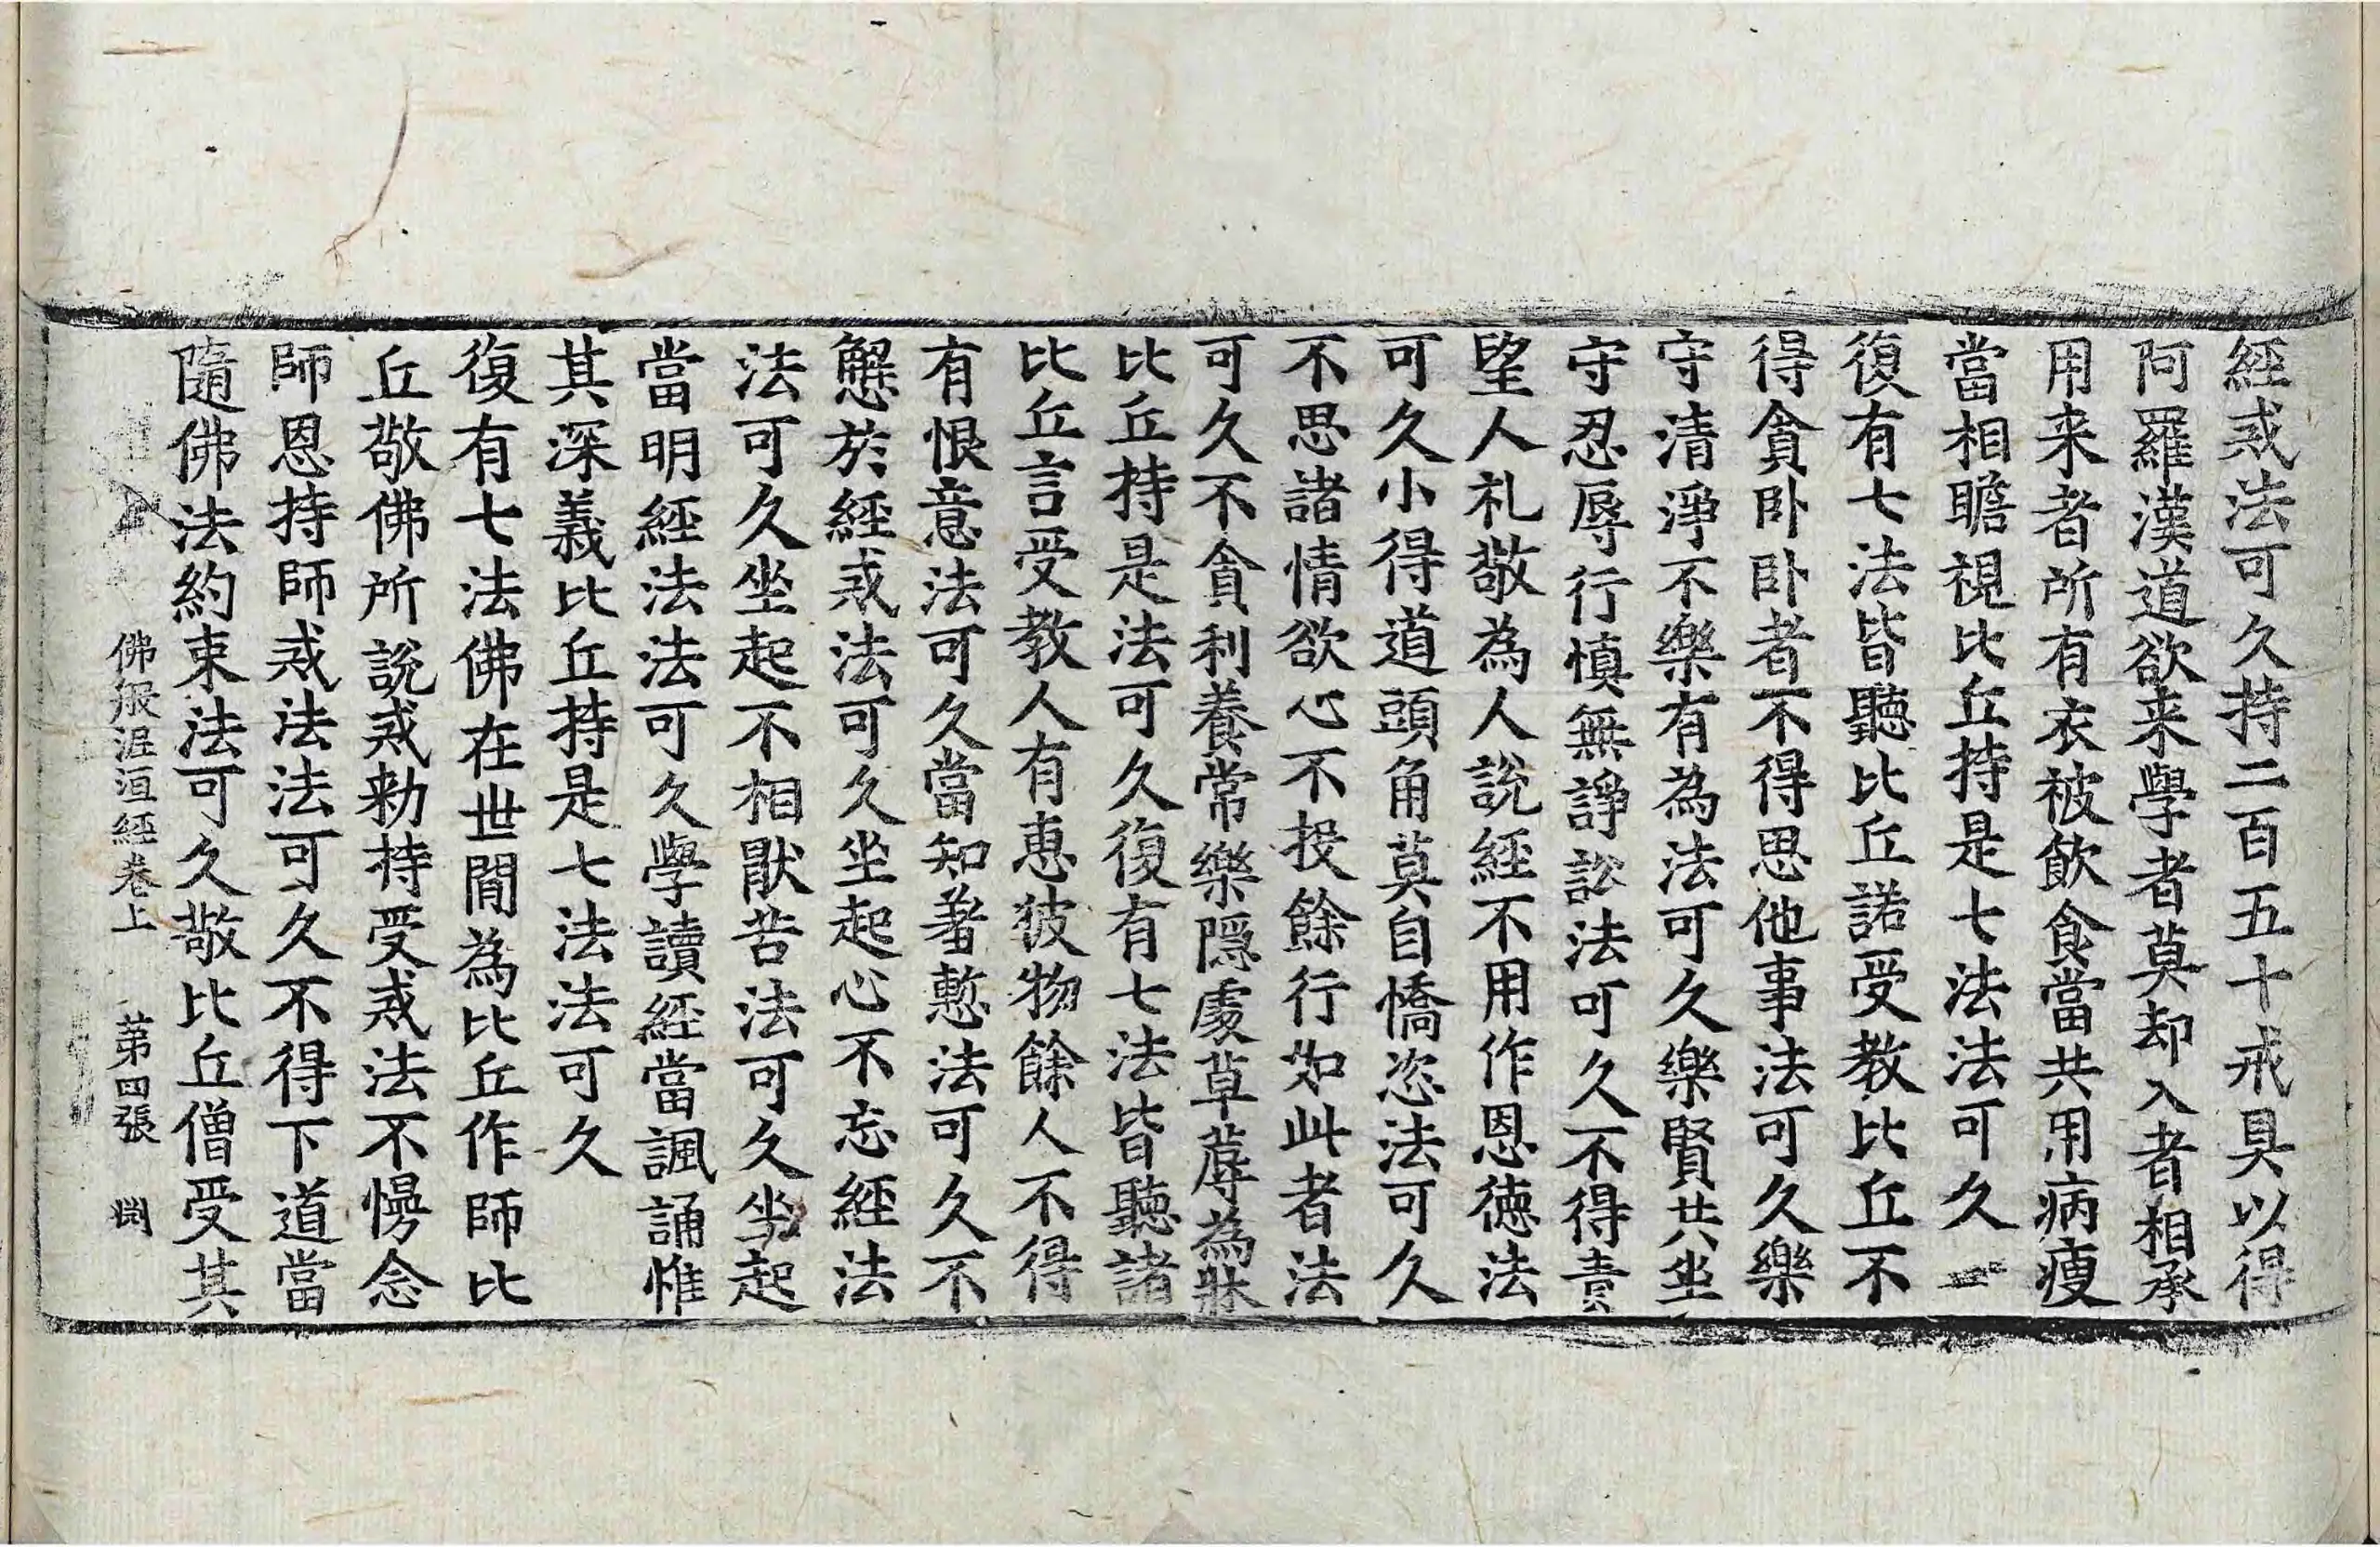 經戒法可久持二百五十戒具以得
阿羅漢道欲来學者莫却入者相承
用来者所有衣被飲食當共用病瘦
當相瞻視比丘持是七法法可久一
復有七法皆聽比丘諾受教比丘不
得貪卧卧者不得思他事法可久樂
守清淨不樂有為法可久樂賢共坐
守忍辱行慎無諍訟法可久不得責
望人礼敬為人說經不用作恩德法
可久小得道頭角莫自憍恣法可久
不思諸情欲心不投餘行如此者法
可久不貪利養常樂隱處草蓐為牀
比丘持是法可久復有七法皆聽諸
比丘言受教人有恵彼物餘人不得
有恨意法可久當知着慙法可久不
懈於經戒法可久坐起心不忘經法
法可久坐起不相猒苦法可久坐起
當明經法法可久學讀經當諷誦惟
其深義比丘持是七法法可久
復有七法佛在世閒為比丘作師比
丘敬佛所說戒勑持受戒法不慢念
師恩持師戒法法可久不得下道當
隨佛法約束法可久敬比丘僧受其
佛般泥洹經卷上 第四張